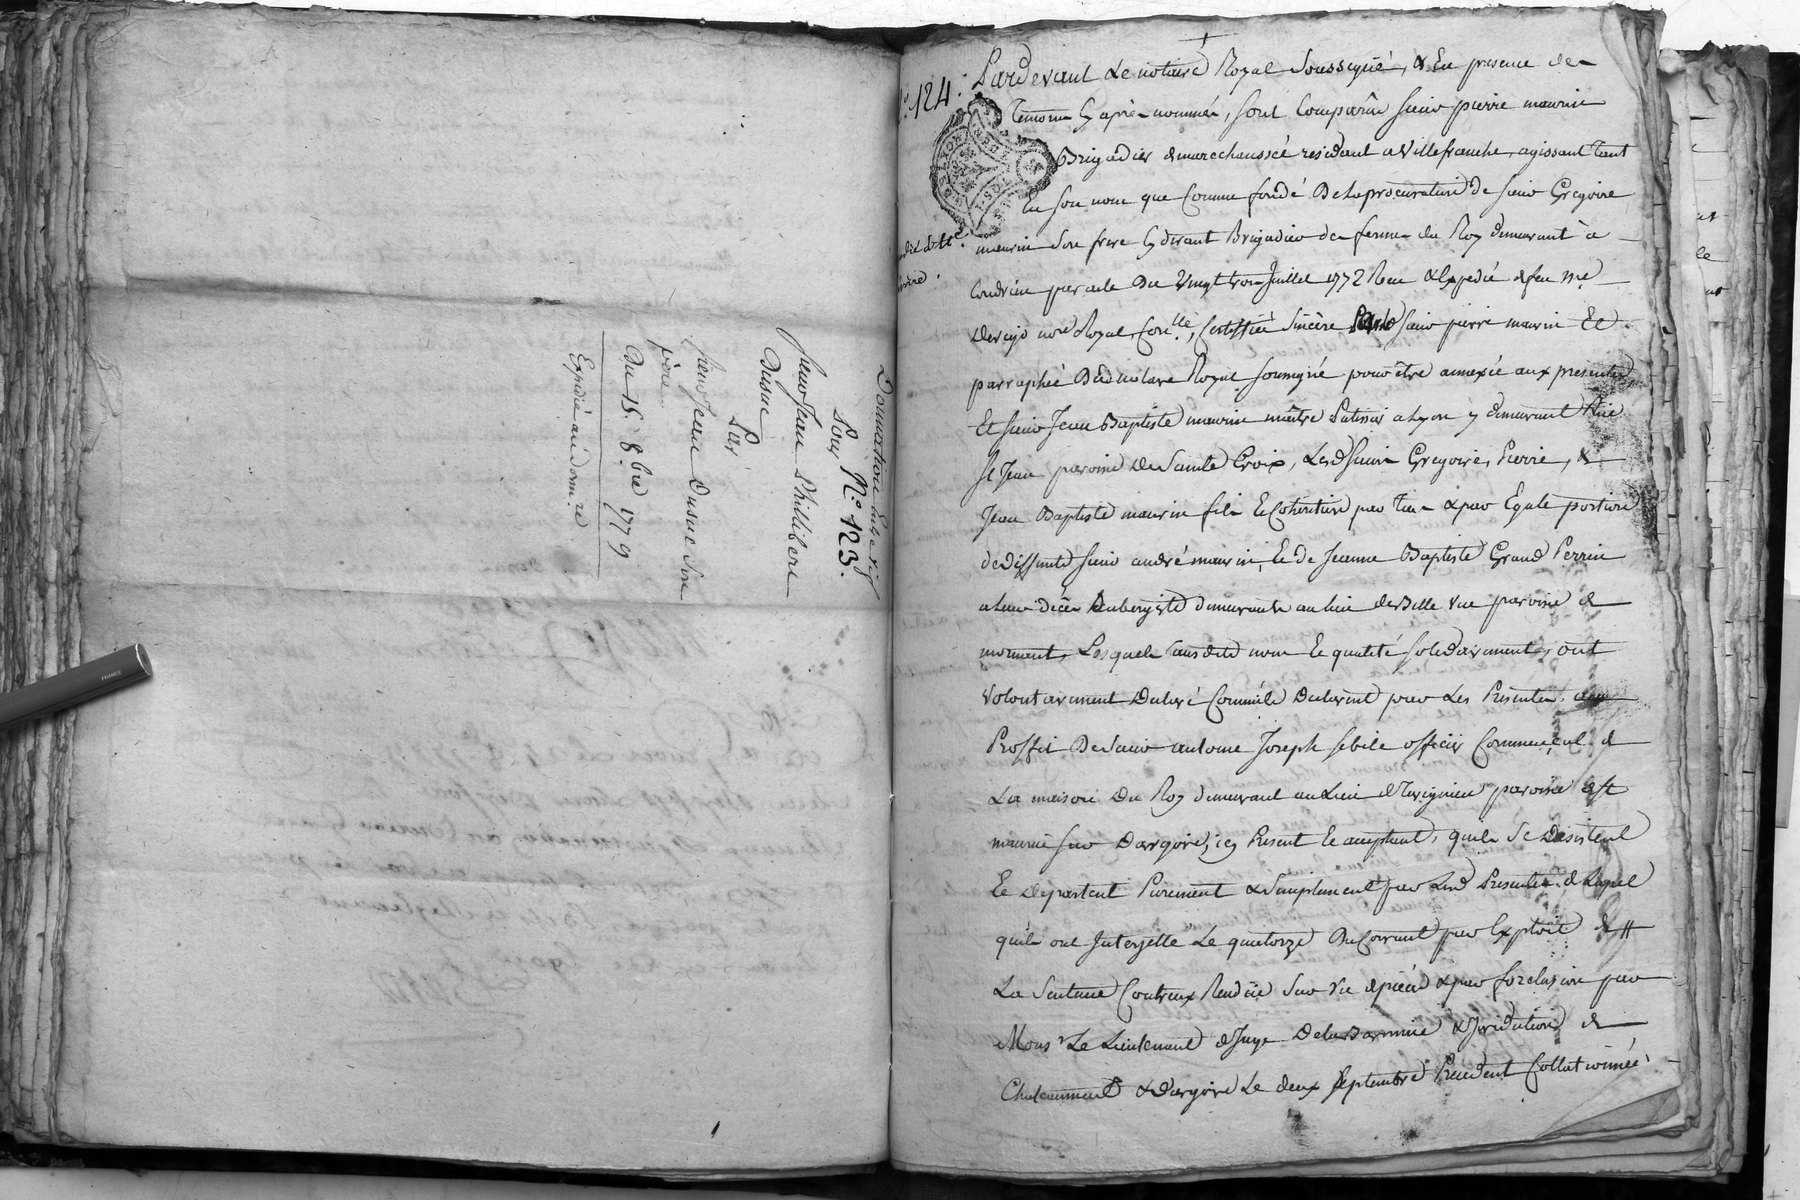 Donnation Entre vif
Pour N.° 123.
sieur Jean Phillibert
Dusuc
Par
sieur Jean Dusuc Son
père
Du 15. 8.bre 1779
Expédié au donn.re
FRANCE
N.° 124.
Pardevant Le notaire Royal Soussigné, & En presence de
Temoins Cy après nommés, sont Comparus sieur pierre maurin
Brigadier de marechaussée residant a Villefranche, agissant tant
En son nom que Comme fondé De la procuration de sieur Gregoire
maurin son frere Cy devant Brigadier de fermes du Roy demeurant à
Condrieu par acte Du Vingt trois Juillet 1772 Recu & Expedié de feu Me
no.re Royal, Certiffiée Sincère Par led sieur pierre maurin Et
parraphée Dud notaire Royal soussigné pour être annexée aux presentes,
Et sieur Jean Baptiste maurin maître Patissier a Lyon y demeurant Rue
St Jean paroisse de Sainte Croix, Lesd sieurs Gregoire, Pierre, &
Jean Baptiste maurin fils Et Cohéritiers par Tiers & par Egale portion
de deffunts sieur andré maurin, Et de Jeanne Baptiste Grand Perrin
a leur décès Aubergiste demeurants au lieu de Belle vue paroisse de
mornant, Lesquels ausdits nom Et qualité solidairement, ont
volontairement Declaré Comme ils Declarent par Les Presentes au
Proffit De Sieur antoine Joseph sebile officier Commensal de
La maison Du Roy demeurant au Lieu de paroisse de St
maurice sur Dargoire, icy Present Et acceptant, qu'ils Se Desistent
Et departent Purement & Simplement par Lesd Presentes de Lapel
quils ont Interjetté Le quatorze Du Courant par Exploit de
La Sentence Contreux Rendue Sur Vu de pieces & par forclusion par
Mons.r Le Lieutenant de Juge De la Baronnie & Juridiction de
Chateauneuf & Dargoire Le deux Septembre Precedent Collationnée